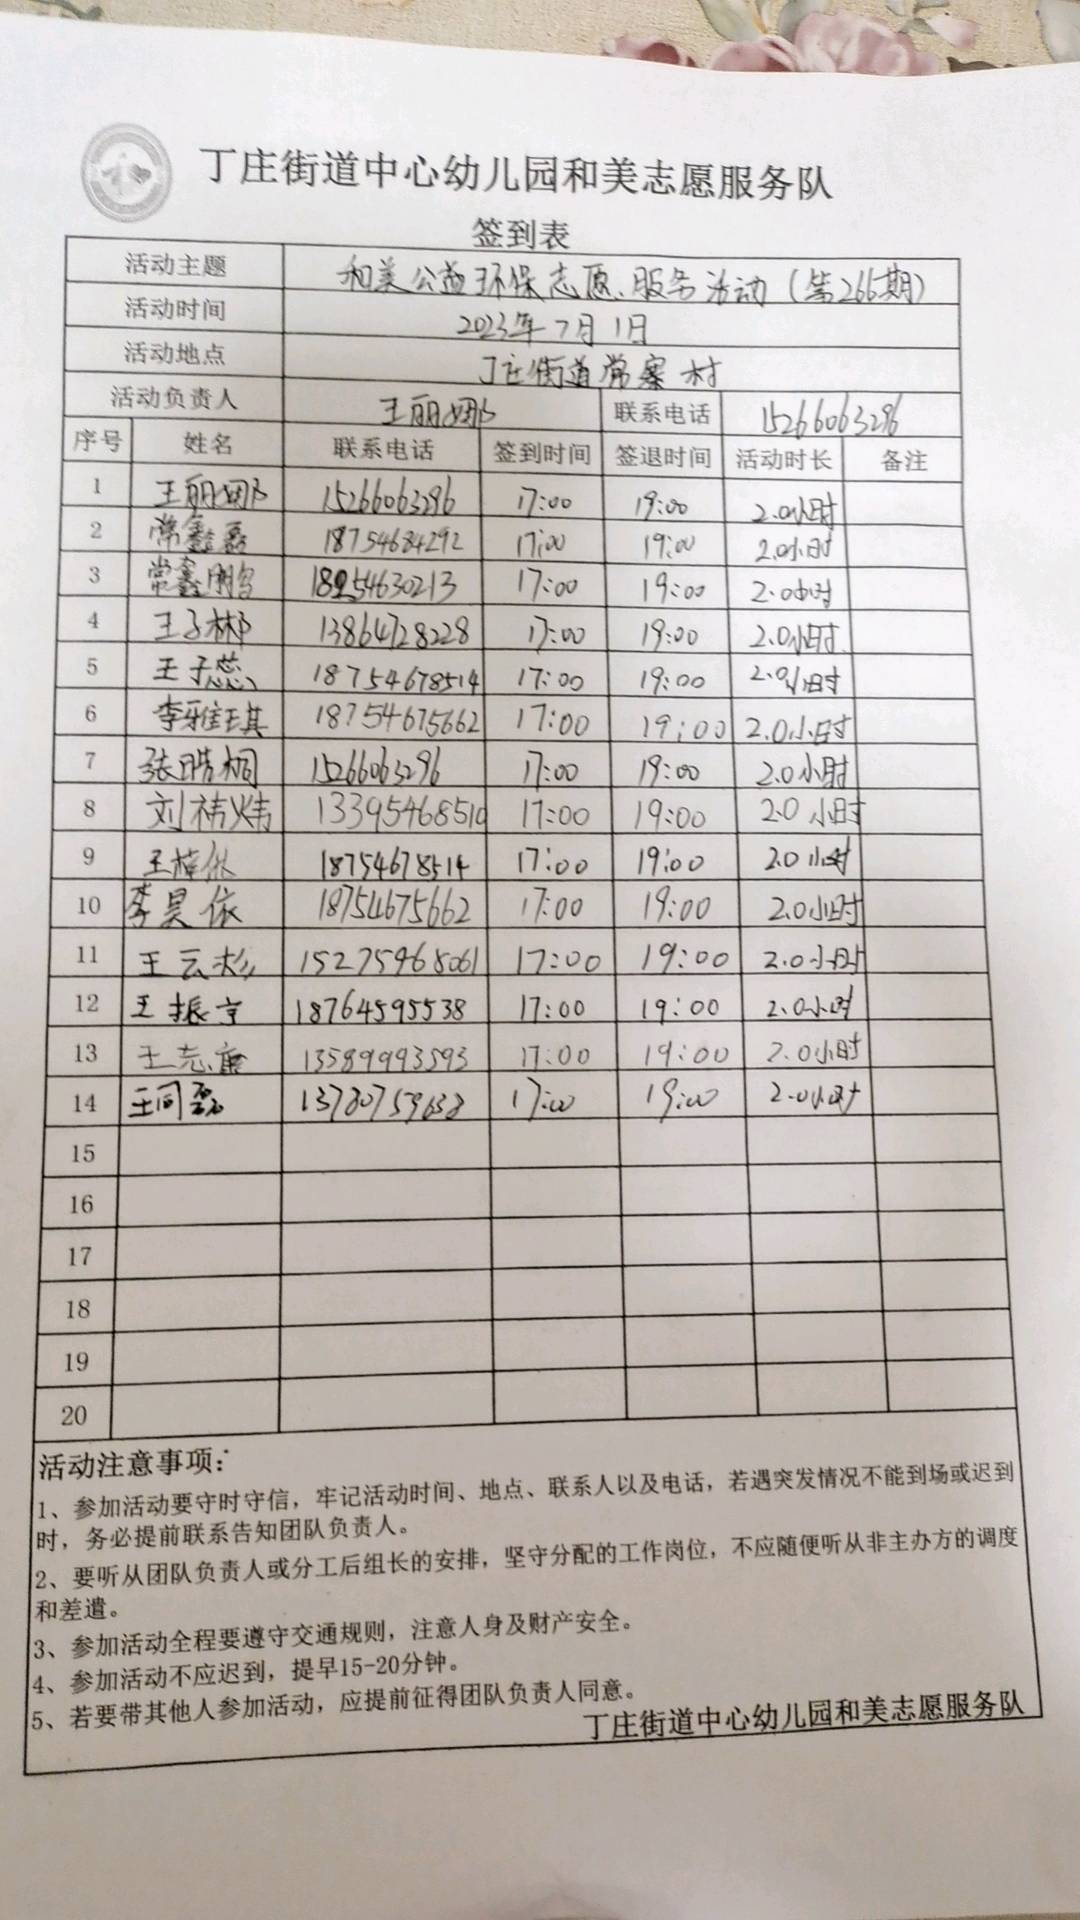 丁庄街道中心幼儿园和美志愿服务队
签到表
活动主题 和美公益环保志愿服务活动（第266期）
活动时间 2023年7月1日
活动地点 丁庄街道常寨村
活动负责人 王丽娜 联系电话 15266063296
序号 姓名 联系电话 签到时间 签退时间 活动时长 备注
1 王丽娜 15266063296 17:00 19:00 2.0小时
2 常鑫磊 18754684292 17:00 19:00 2.0小时
3 常鑫 18254630213 17:00 19:00 2.0小时
4 王子彬 13864728228 17:00 19:00 2.0小时
5 王子蕊 18754678514 17:00 19:00 2.0小时
6 李雅琪 18754675662 17:00 19:00 2.0小时
7 张皓桐 15266063296 17:00 19:00 2.0小时
8 刘祎炜 13395468510 17:00 19:00 2.0小时
9 王梓 18754678514 17:00 19:00 2.0小时
10 李昊依 18754675662 17:00 19:00 2.0小时
11 王云杉 15275968061 17:00 19:00 2.0小时
12 王振宇 18764595538 17:00 19:00 2.0小时
13 王志 13589993593 17:00 19:00 2.0小时
14 王同磊 13780759638 17:00 19:00 2.0小时
15
16
17
18
19
20
活动注意事项：
1、参加活动要守时守信，牢记活动时间、地点、联系人以及电话，若遇突发情况不能到场或迟到
时，务必提前联系告知团队负责人。
2、要听从团队负责人或分工后组长的安排，坚守分配的工作岗位，不应随便听从非主办方的调度
和差遣。
3、参加活动全程要遵守交通规则，注意人身及财产安全。
4、参加活动不应迟到，提早15-20分钟。
5、若要带其他人参加活动，应提前征得团队负责人同意。
丁庄街道中心幼儿园和美志愿服务队